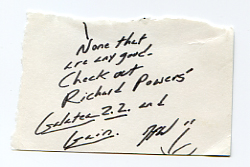 None that
are any good.
Check out
Richard Powers'
Galatea 2.2. and
Gain.